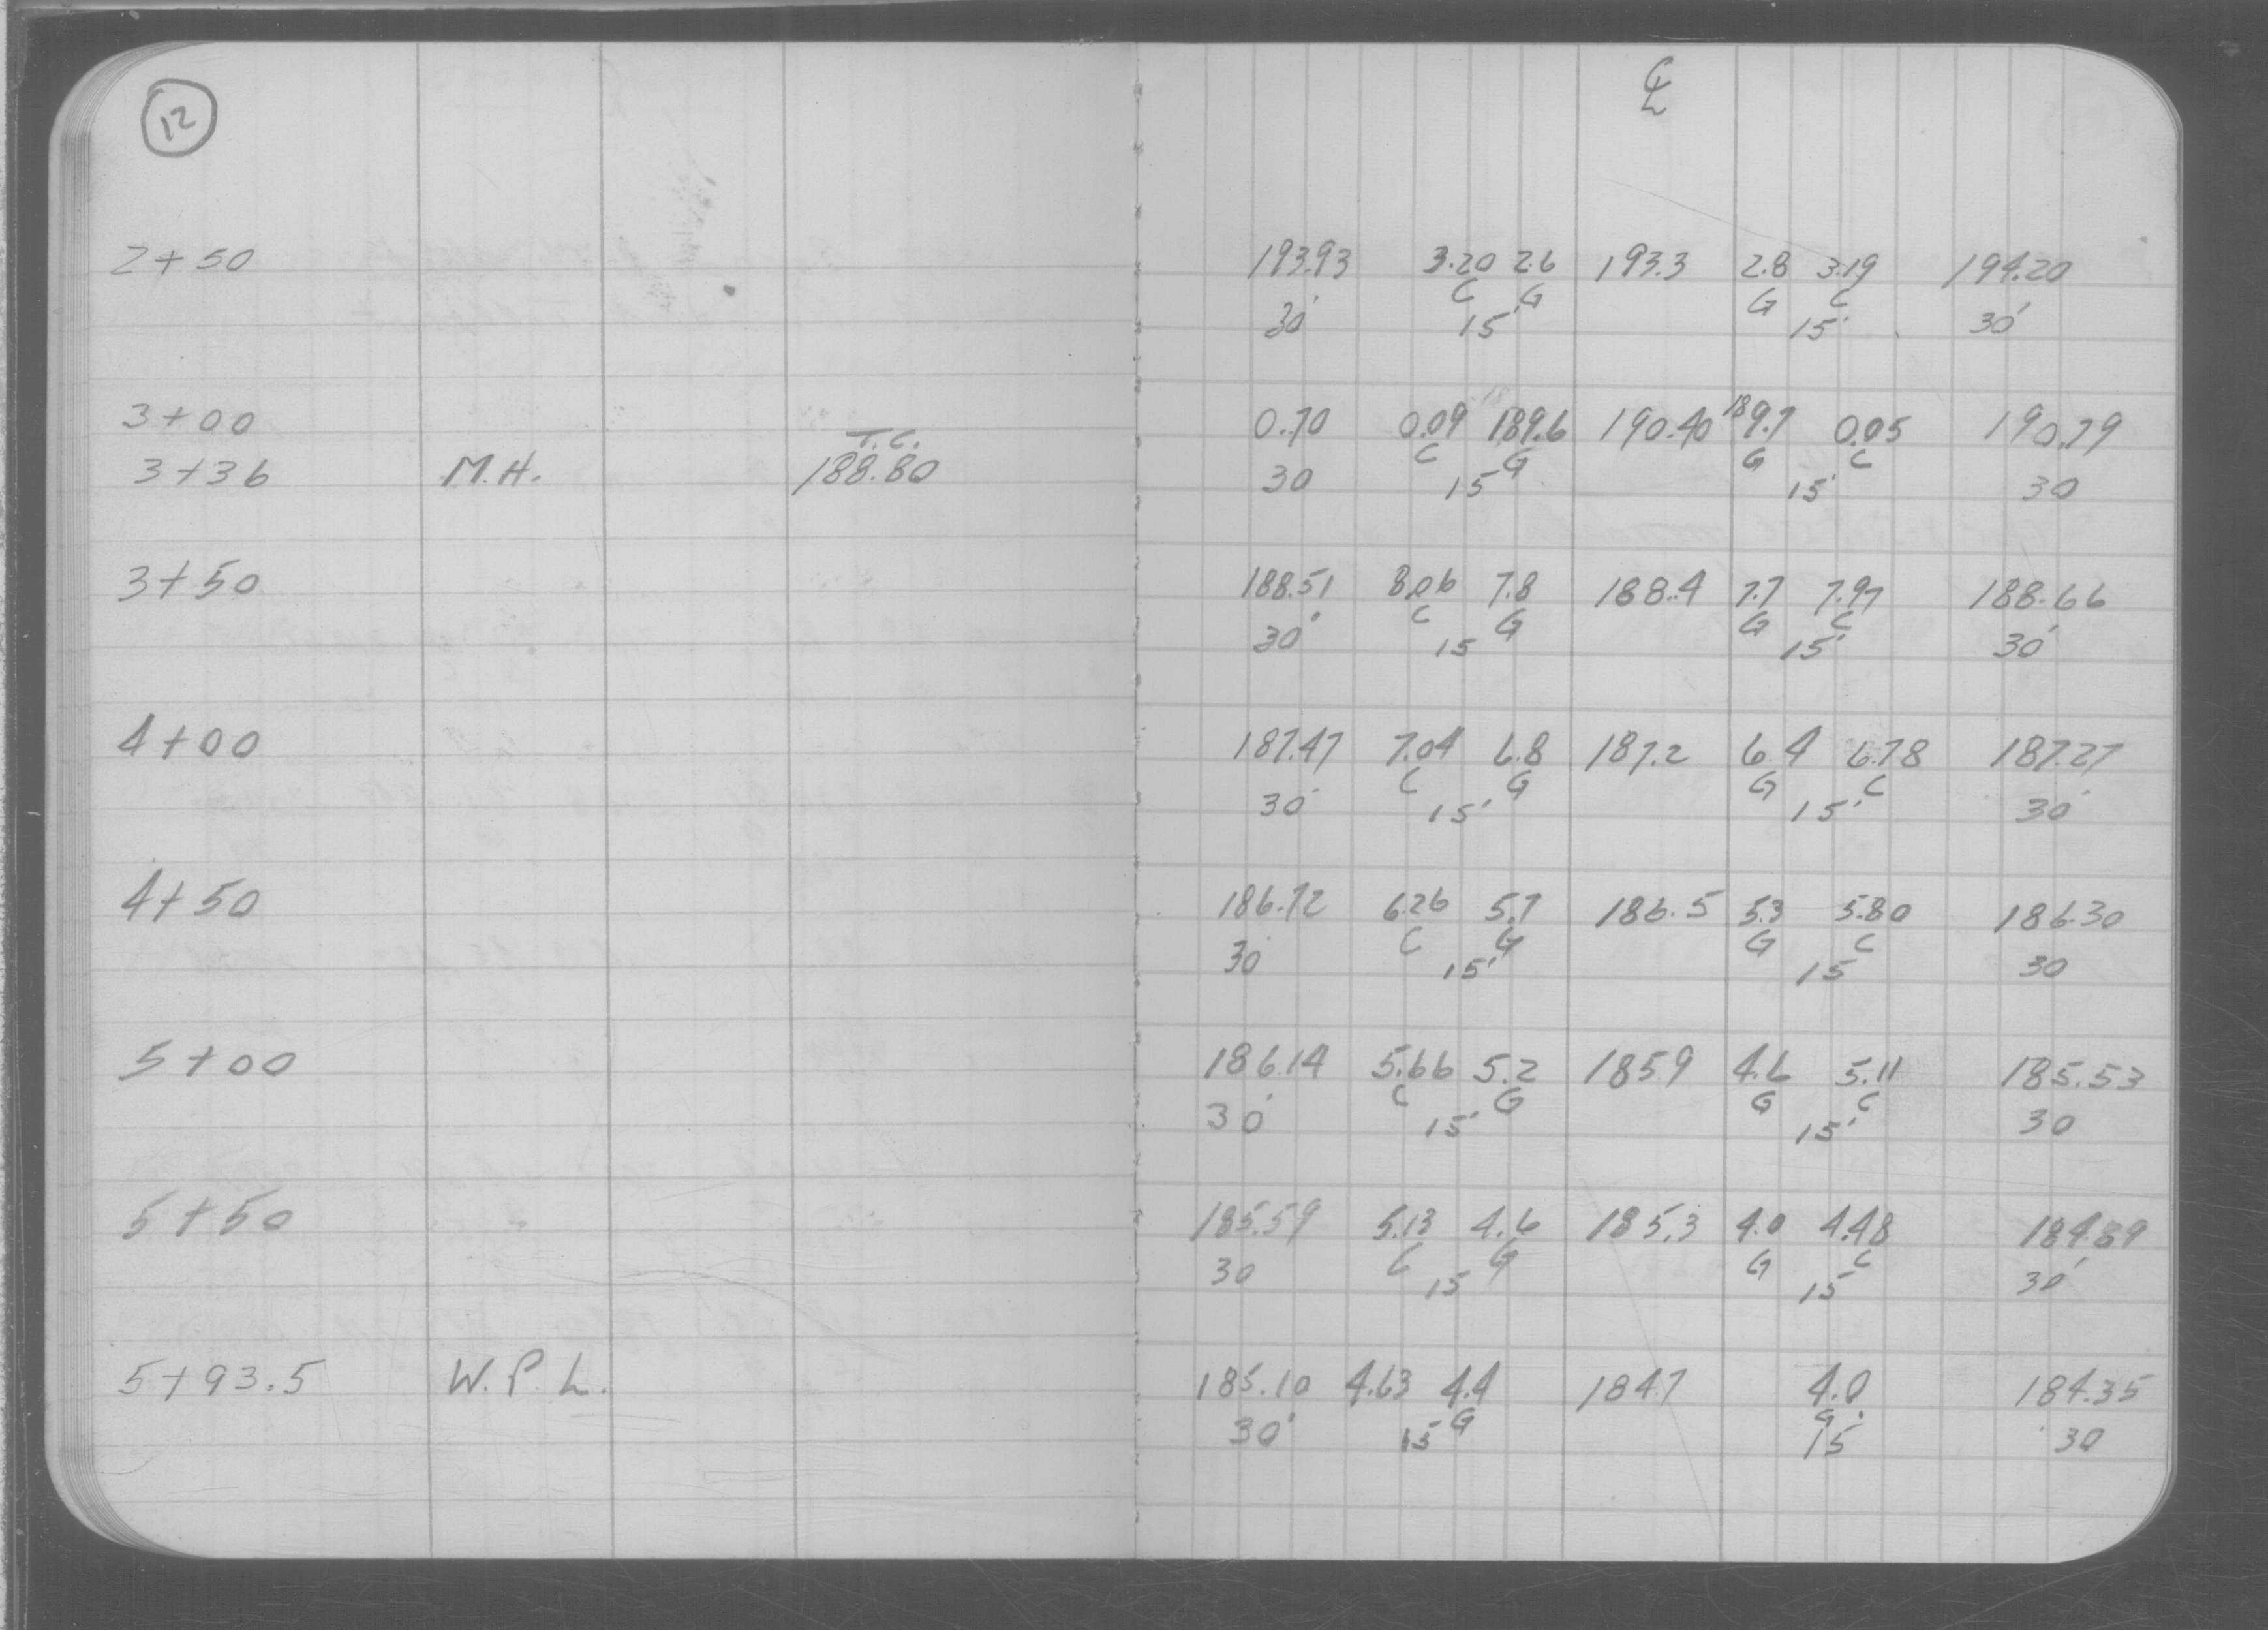 12
℄
2+50 193.93 3.20 2.6 193.3 2.8 3.19 194.20
C G G C
30' 15' 15' 30'
3+00 0.70 0.09 189.6 190.40 189.7 0.05 190.79
T.C. C G G C
3+36 M.H. 188.80 30 15 15' 30
3+50 188.51 8.06 7.8 188.4 7.7 7.97 188.66
C G G C
30' 15 15' 30'
4+00 187.47 7.04 6.8 187.2 6.4 6.78 187.27
C G G C
30' 15' 15' 30'
4+50 186.72 6.26 5.7 186.5 5.3 5.80 186.30
C G G C
30 15' 15 30
5+00 186.14 5.66 5.2 185.9 4.6 5.11 185.53
C G G C
30' 15' 15' 30
5+50 185.59 5.13 4.6 185.3 4.0 4.48 184.89
C G G C
30 15 15 30'
5+93.5 W.P.L. 185.10 4.63 4.4 184.7 4.0 184.35
G G
30' 15 15 30